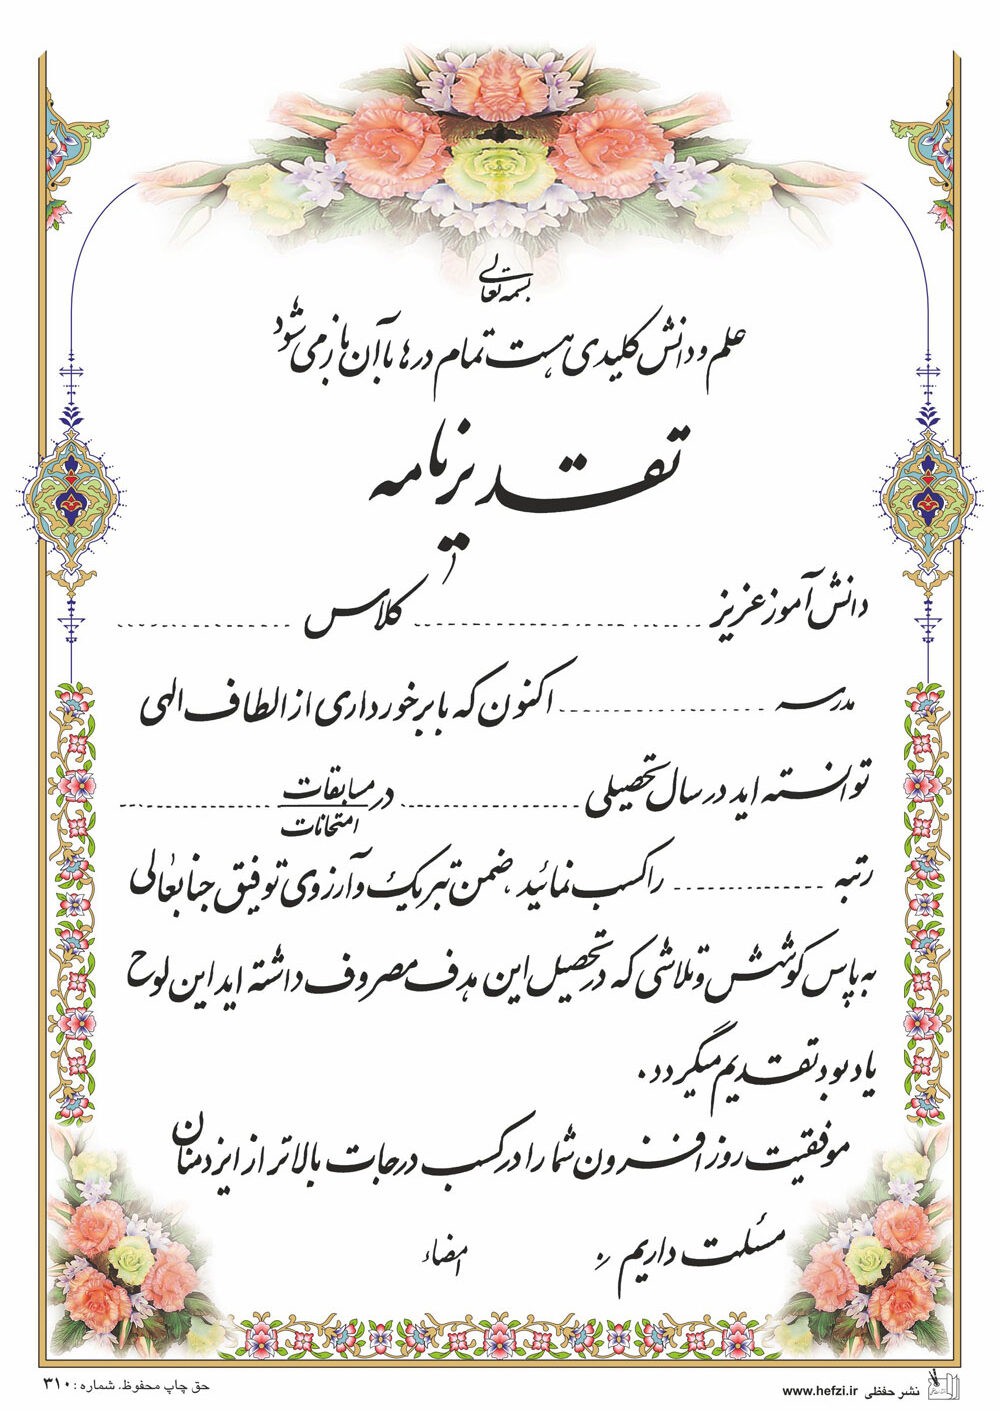 بسمه تعالی
علم و دانش کلیدی هست تمام درها با آن باز می شود
تقدیرنامه
دانش آموز عزیز ........................ کلاس ................
مدرسه ........................ اکنون که با برخورداری از الطاف الهی
توانسته اید در سال تحصیلی .................... در مسابقات ................
امتحانات
رتبه ................ را کسب نمائید، ضمن تبریک و آرزوی توفیق جنابعالی
به پاس کوشش و تلاشی که در تحصیل این هدف مصروف داشته اید این لوح
یادبود تقدیم میگردد.
موفقیت روز افزون شما را در کسب درجات بالاتر از ایزد منان
مسئلت داریم.
امضاء
حق چاپ محفوظ، شماره: ۳۱۰
نشر حفظی www.hefzi.ir